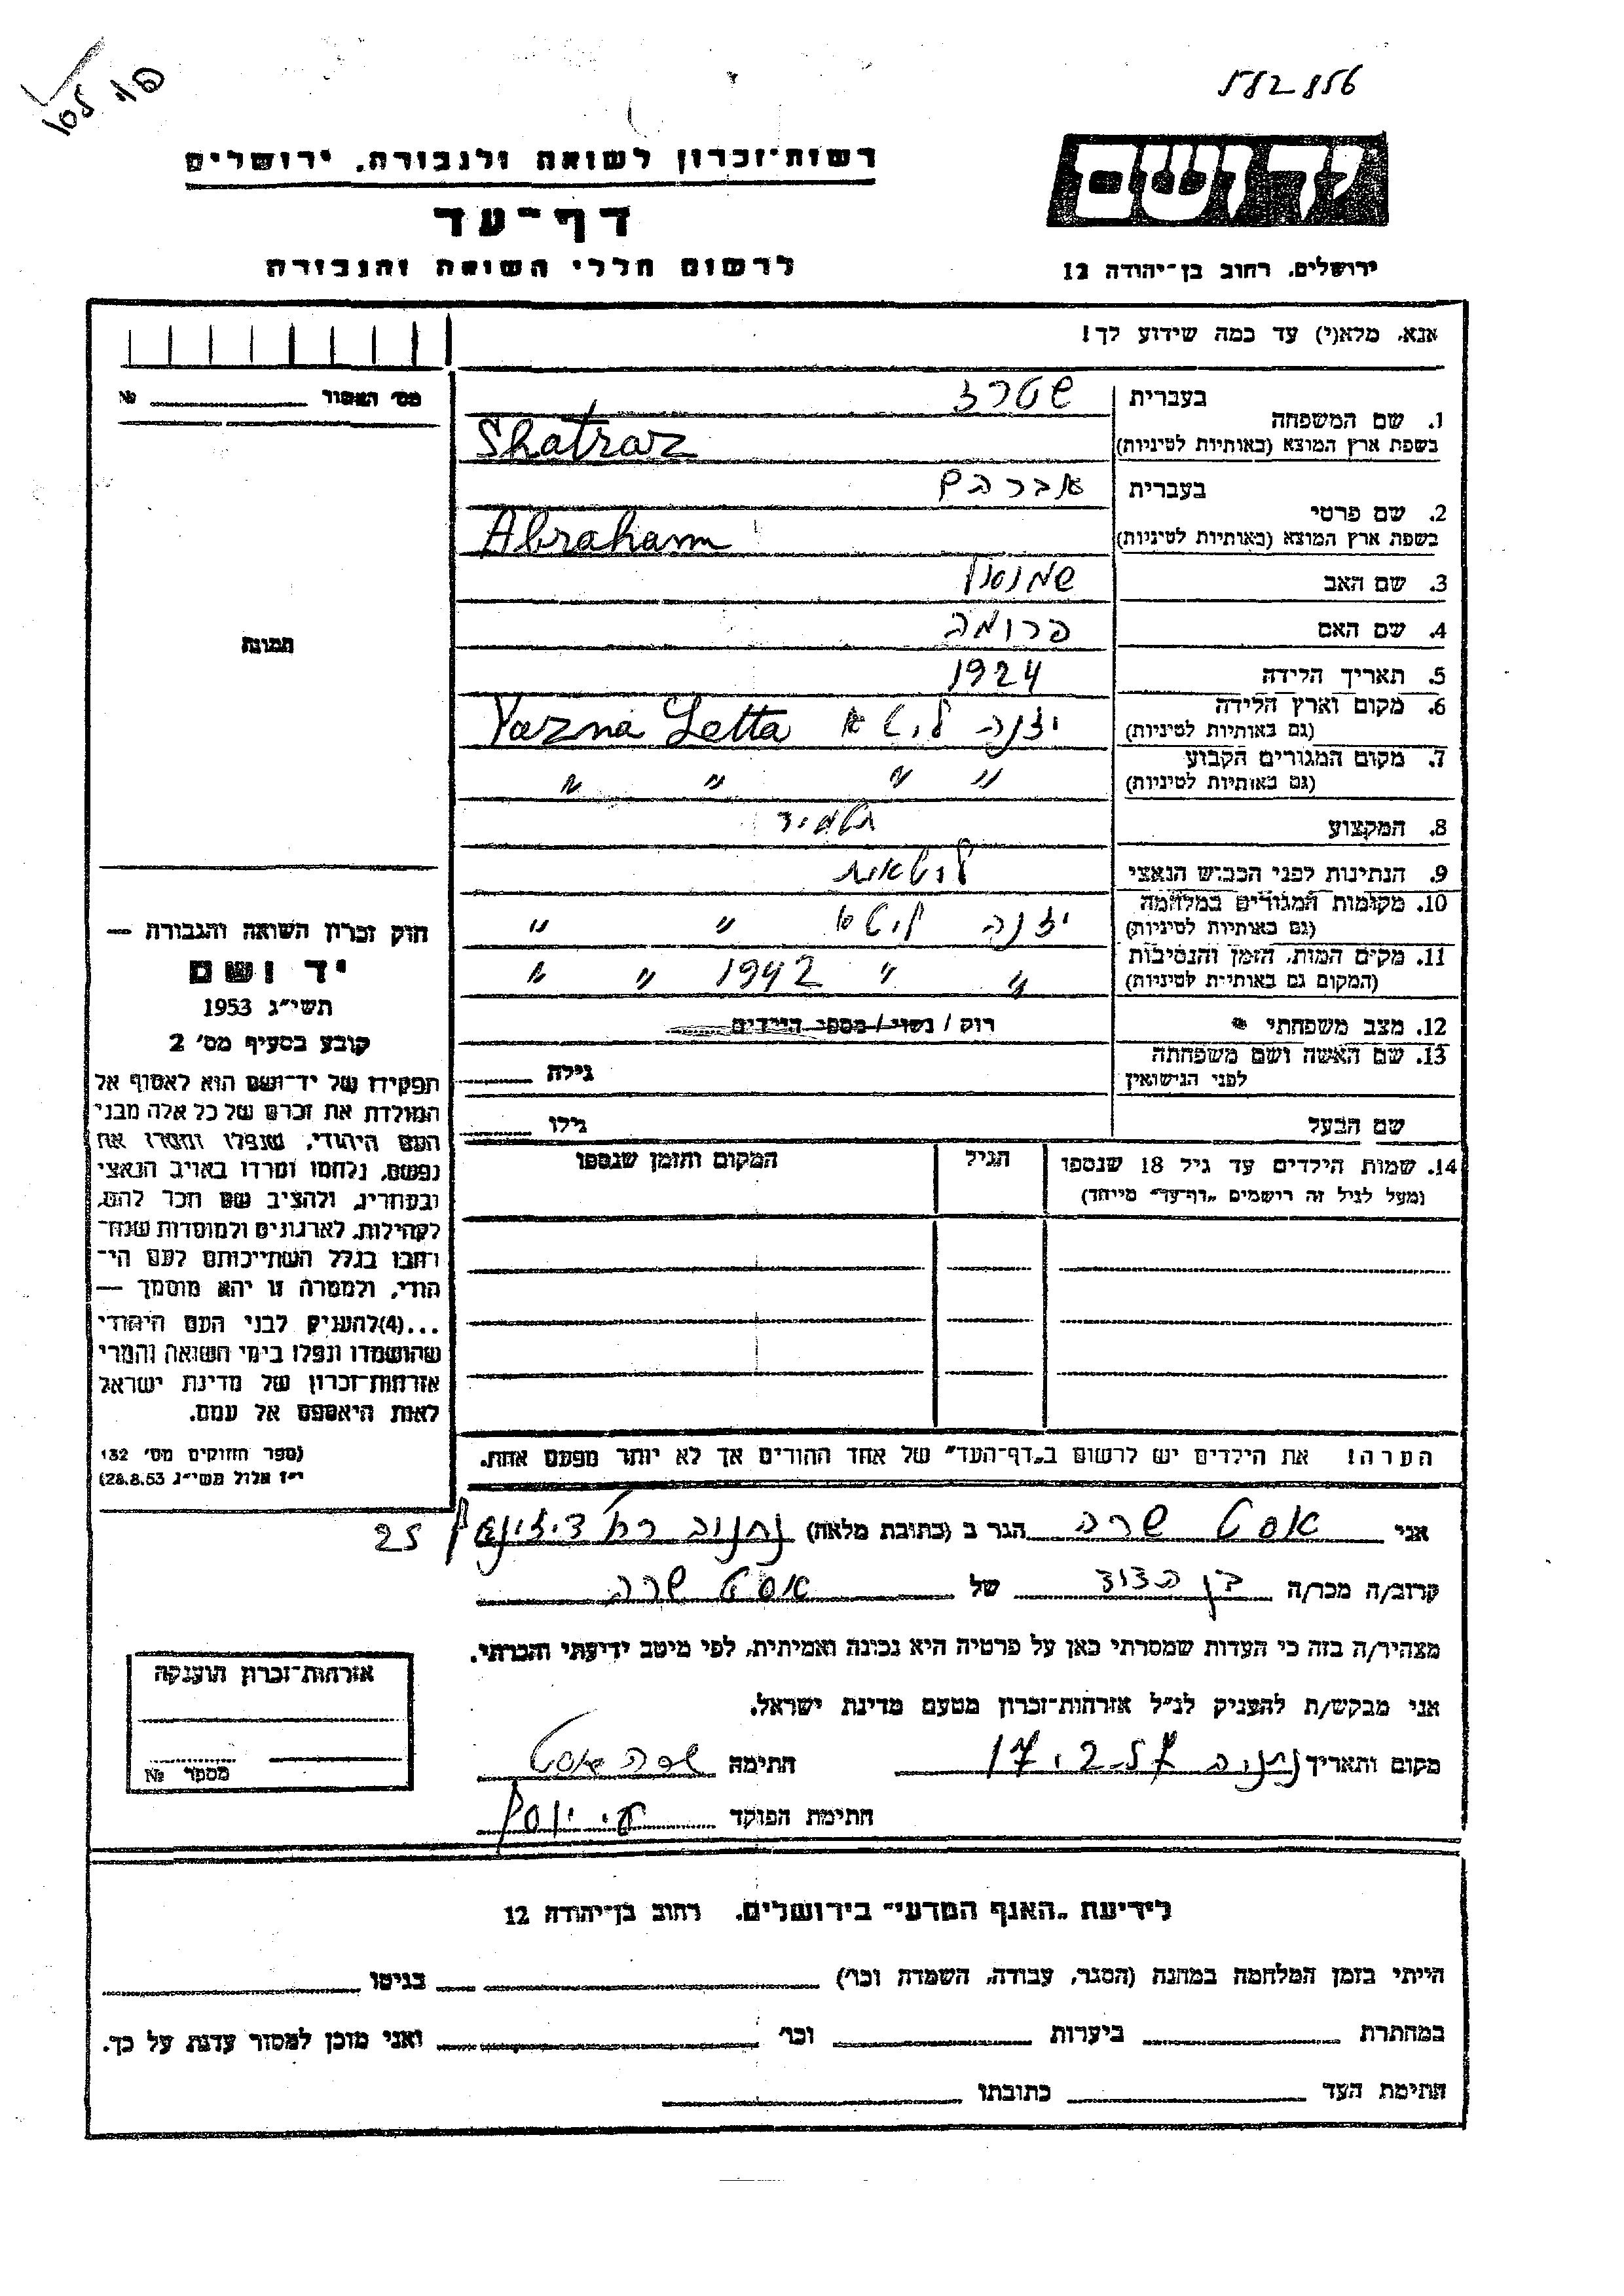 582856
יד ושם
רשות-זכרון לשואה ולגבורה, ירושלים
דף-עד
לרשום חללי השואה והגבורה
ירושלים, רחוב בן-יהודה 12
אנא, מלא(י) עד כמה שידוע לך!
מס' האשור № 
בעברית שטרז
1. שם המשפחה
בשפת ארץ המוצא (באותיות לטיניות) Shatraz
בעברית אברהם
2. שם פרטי
בשפת ארץ המוצא (באותיות לטיניות) Abraham
3. שם האב
4. שם האם פרומה
5. תאריך הלידה 1924
6. מקום וארץ הלידה
(גם באותיות לטיניות) יזנה ליטא Yazna Letta
7. מקום המגורים הקבוע
(גם באותיות לטיניות) " " " "
8. המקצוע תלמיד
9. הנתינות לפני הכבוש הנאצי ליטאית
10. מקומות המגורים במלחמה
(גם באותיות לטיניות) יזנה ליטא " "
11. מקום המות, הזמן והנסיבות
(המקום גם באותיות לטיניות) " " 1942 " "
12. מצב משפחתי * רווק / נשוי / מספר הילדים
13. שם האשה ושם משפחתה
לפני הנישואין גילה
שם הבעל גילו
14. שמות הילדים עד גיל 18 שנספו הגיל המקום והזמן שנספו
(מעל לגיל זה רישמים "דף-עד" מייחד)
הערה! את הילדים יש לרשום ב"דף-העד" של אחד ההורים אך לא יותר מפעם אחת.
תמונה
חוק זכרון השואה והגבורה —
יד ושם
תשי"ג 1953
קובע בסעיף מס' 2
תפקידו של יד-ושם הוא לאסוף אל
המולדת את זכרם של כל אלה מבני
העם היהודי, שנפלו ומסרו את
נפשם, נלחמו ומרדו באויב הנאצי
ובעוזריו, ולהציב שם וזכר להם,
לקהילות, לארגונים ולמוסדות שנח-
רבו בגלל השתייכותם לעם הי-
הודי, ולמטרה זו יהא מוסמך —
...(4)להעניק לבני העם היהודי
שהושמדו ונפלו בימי השואה והמרי
אזרחות-זכרון של מדינת ישראל
לאות היאספם אל עמם.
(ספר החוקים מס' 132
י"ז אלול תשי"ג 28.8.53)
אני אסט שרה הגר ב (כתובת מלאה) נתניה 25
קרוב/ה מכר/ה בן הדוד של אסט שרה
מצהיר/ה בזה כי העדות שמסרתי כאן על פרטיה היא נכונה ואמיתית, לפי מיטב ידיעתי והכרתי.
אני מבקש/ת להעניק לנ"ל אזרחות-זכרון מטעם מדינת ישראל.
מקום ותאריך נתניה חתימה שרה אסט
חתימת הפוקד
אזרחות-זכרון הוענקה
מספר №
לידיעת "האגף המדעי" בירושלים, רחוב בן-יהודה 12
הייתי בזמן המלחמה במחנה (הסגר, עבודה, השמדה וכו') בגיטו
במחתרת ביערות וכו' ואני מוכן למסור עדות על כך.
חתימת העד כתובתו